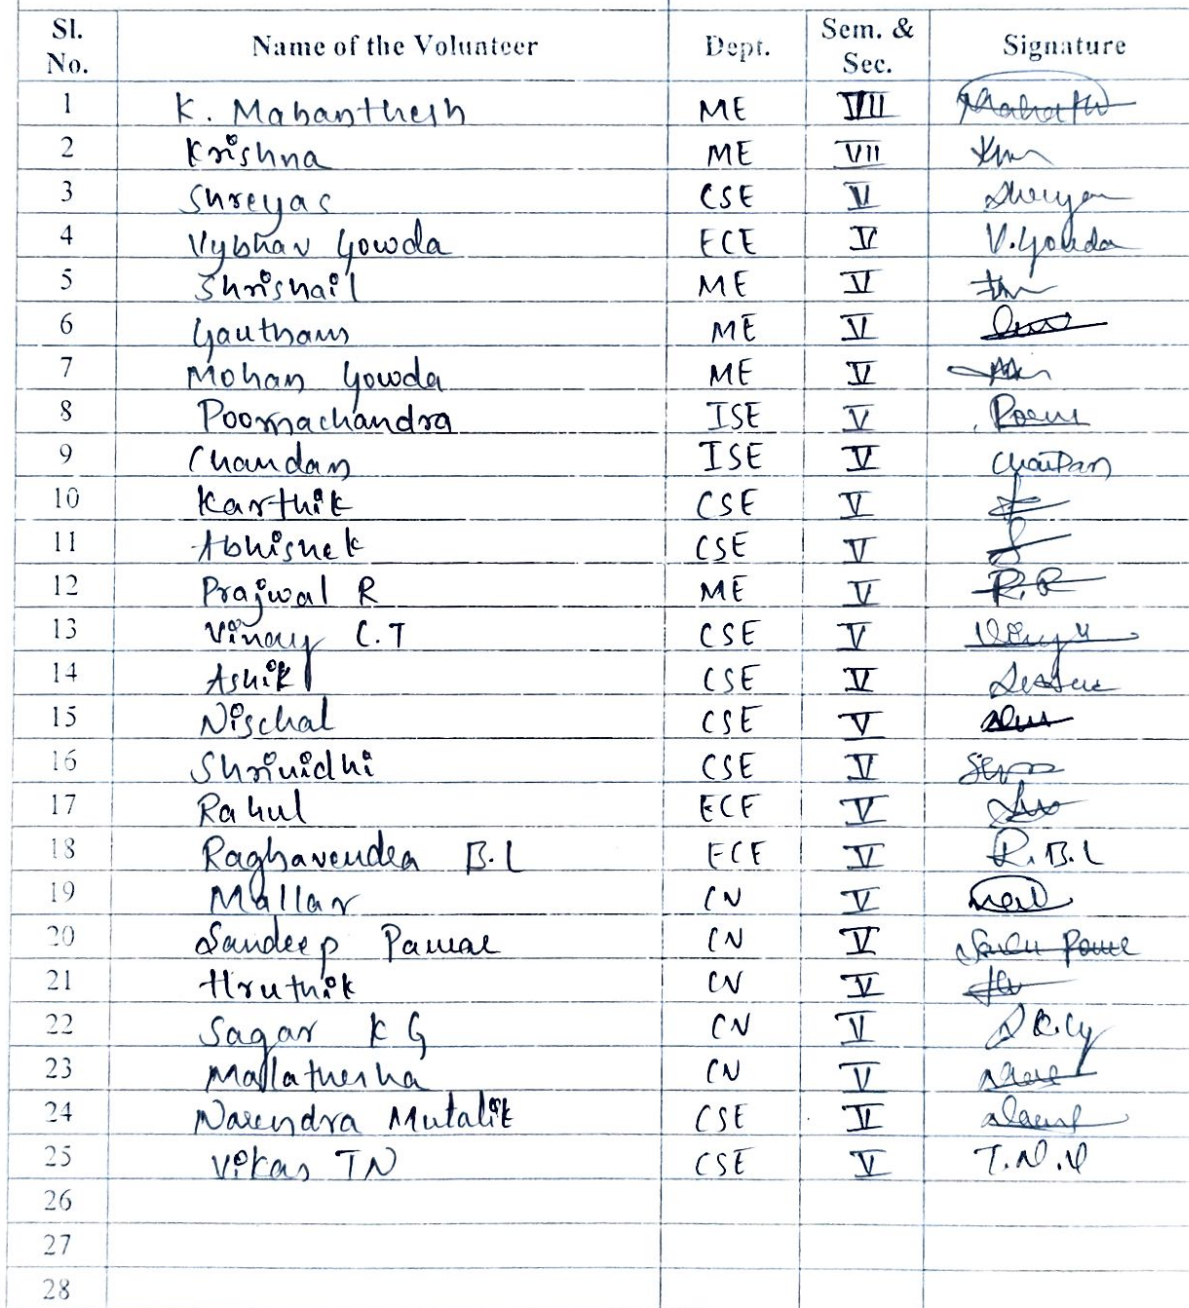 Sl. No. Name of the Volunteer Dept. Sem. & Sec. Signature
1 K. Mahanthesh ME VII
2 Krishna ME VII
3 Shreyas CSE V
4 Vybhav Gowda ECE V V.Gowda
5 Shrishail ME V
6 Gautham ME V
7 Mohan Gowda ME V
8 Poornachandra ISE V
9 Chandan ISE V
10 Karthik CSE V
11 Abhishek CSE V
12 Prajwal R ME V P.R
13 Vinay C.T CSE V
14 Ashik CSE V
15 Nischal CSE V
16 Shrinidhi CSE V
17 Rahul ECE V
18 Raghavendra B.L ECE V R.B.L
19 Mallar CN V
20 Sandeep Pawar CN V
21 Hruthik CN V
22 Sagar K G CN V
23 CN V
24 Narendra Mutalik CSE V
25 Vikas TN CSE V T.N.V
26
27
28